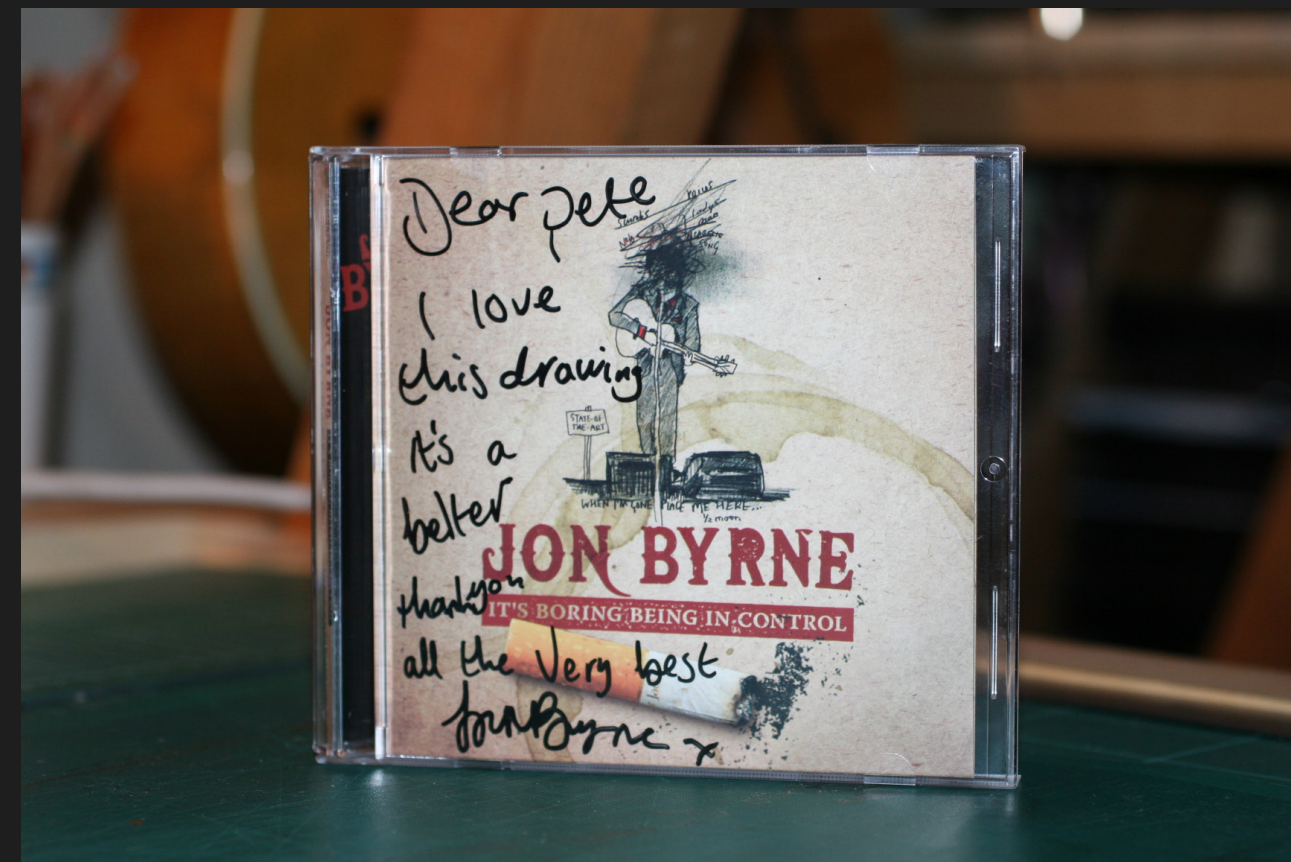 Dear Pete
I love
this drawing
it's a
belter
thankyou
all the very best
Jon Byrne x
STATE-OF
THE-ART
WHEN I'M GONE PLACE ME HERE...
1/2 moon
JON BYRNE
IT'S BORING BEING IN CONTROL